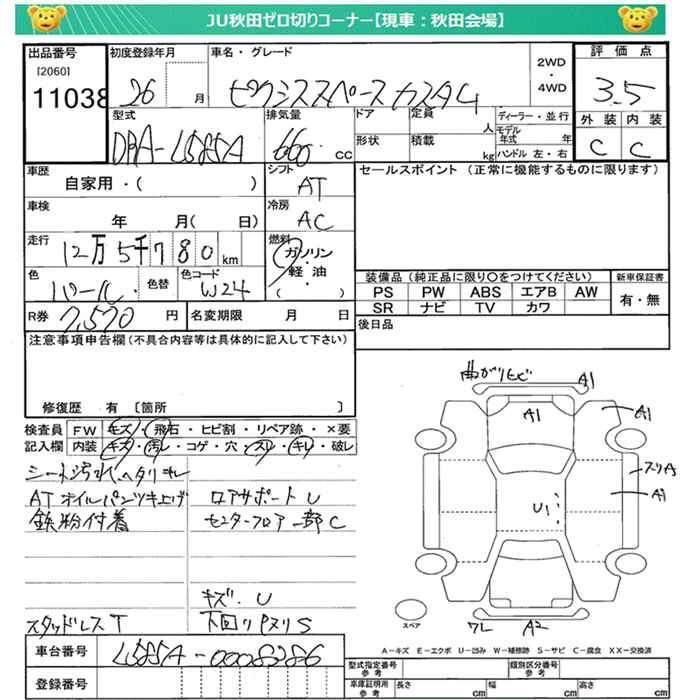 JU秋田ゼロ切りコーナー【現車：秋田会場】
出品番号 初度登録年月 車名・グレード 2WD・4WD 評価点
[2060]
11038 26 月 ピクシススペース カスタム 3.5
型式 排気量 ドア 定員 人 ディーラー・並行 外装 内装
DBA-L585A 660 cc 形状 積載 kg モデル年式 年 ハンドル 左・右 C C
車歴 シフト セールスポイント（正常に機能するものに限ります）
自家用・( ) AT
車検 冷房
年 月( 日) AC
走行 燃料
12万5千780km ガソリン
軽・油
( )
色 色替 色コード 装備品（純正品に限り○をつけてください） 新車保証書
パール W24 PS PW ABS エアB AW 有・無
SR ナビ TV カワ
R券 7,570 円 名変期限 月 日 後日品
注意事項申告欄（不具合内容等は具体的に記入して下さい）
修復歴 有 〔箇所 〕
検査員 FW キズ・飛石・ヒビ割・リペア跡・×要
記入欄 内装 キズ・汚レ・コゲ・穴・スレ・キレ・破レ
シート汚れ ヘタリ キレ
ATオイルパンツキ上げ ロアサポートU
鉄粉付着 センターフロアー部C
キズ.U
スタッドレスT 下回りPスリS
曲がりヒビ A1
A1 A1
スリキズ
A1
U1
ワレ A2
スペア
A－キズ E－エクボ U－凹み W－補修跡 S－サビ C－腐食 XX－交換済
車台番号 L585A-0008286
登録番号 型式指定番号 参考 類別区分番号 参考
車庫証明用 参考 長さ cm 幅 cm 高さ cm